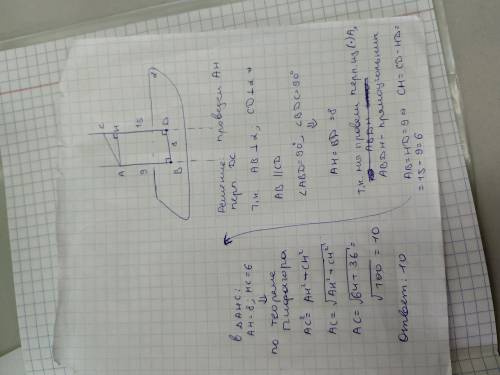 C
H
15
D
α
A
9
8
B
Решение: проведём AH
перп. DC
Т.к. AB ⊥ α, CD ⊥ α ⇒
AB || CD
∠ABD = 90°, ∠BDC = 90°
⇓
AH = BD = 8
т.к. мы провели перп. из (·) A,
ABDH - прямоугольник
AB = HD = 9 ⇒ CH = CD - HD =
= 15 - 9 = 6
в ΔAHC:
AH = 8; HC = 6
⇓
по теореме
Пифагора
AC² = AH² + CH²
AC = √AH² + CH²
AC = √64 + 36 =
√100 = 10
Ответ: 10